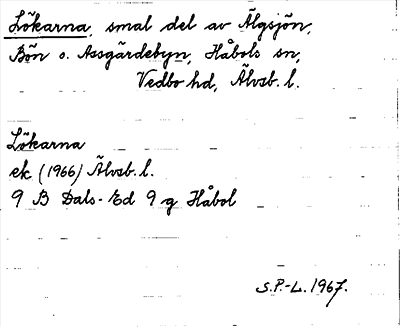 Lökarna, smal del av Älgsjön,
Bön o. Assgärdebyn, Håbols sn,
Vedbo hd, Älvsb. l.
Lökarna
ek (1966) Älvsb. l.
9 B Dals-Ed 9 g Håbol
S.P.-L. 1967.